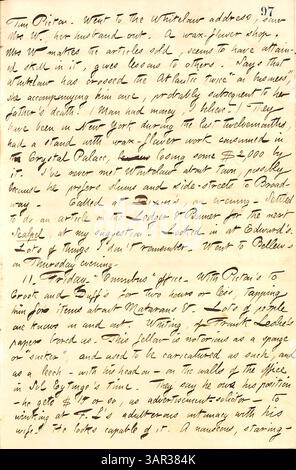 97
Tim Picton. Went to the Whitelaw address, saw
Mrs W, her husband out. A wax-flower shop.
Mrs W makes the articles sold, seems to have attain-
ed skill in it, gives lessons to others. Says that
Whitelaw has crossed the Atlantic twice "on business,"
she accompanying him once, probably subsequent to her
father's death. (Man had money I believe.) They
have been in New York during the last twelvemonths,
had a stand with wax-flower work consumed in
the Crystal Palace, losing some $2,000 by
it. I've never met Whitelaw about town, possibly
because he prefers slums and side-streets to Broad-
way. Called at 's, an evening. Settled
to do an article on Ledger & Bonner for the next
Scalpel at my suggestion. Looked in at Edward's.
Lots of things I don't remember. Went to Pellew's
on Thursday evening.
11. Friday. "Omnibus" office. With Picton to
Crook and Duff's for two hours or less, tapping
him for items about Matanzas &c. Lots of people
one knows in and out. Whiting, of Frank Leslie's
papers bored us. This fellow is notorious as a sponge
or "sucker", and used to be caricatured as such, and
as a leech — with his head on — on the walls of the office
in Sol Eytinge's time. They say he owes his position
— he gets $ 18 or so, as advertisement-solicitor — to
winking at F. L's adulterous intimacy with his
wife. He looks capable of it. A nauseous, staring-
alamy
Image ID: 3AR384K
www.alamy.com